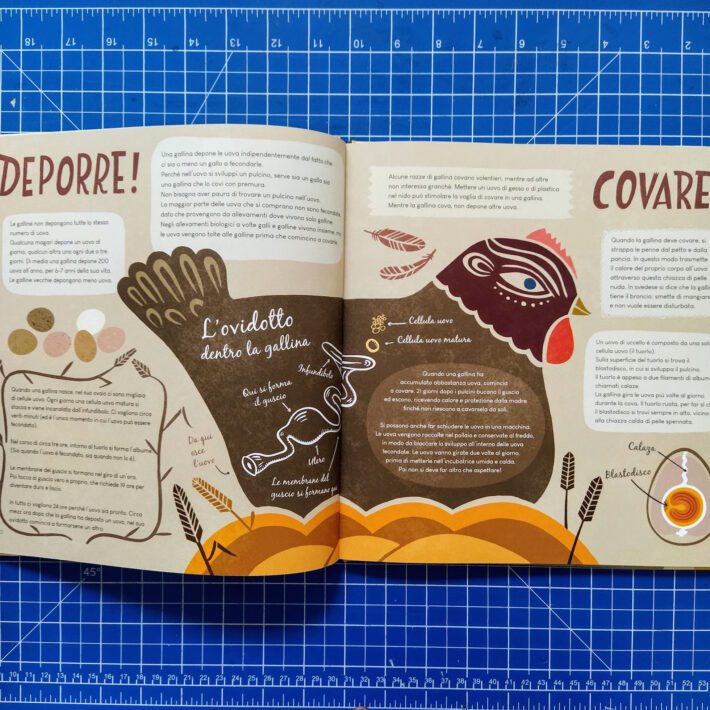 DEPORRE!
Una gallina depone le uova indipendentemente dal fatto che
ci sia o meno un gallo a fecondarle.
Perché nell'uovo si sviluppi un pulcino, serve sia un gallo sia
una gallina che lo covi con premura.
Non bisogna aver paura di trovare un pulcino nell'uovo.
La maggior parte delle uova che si comprano non sono fecondate,
dato che provengono da allevamenti dove vivono solo galline.
Negli allevamenti biologici a volte galli e galline vivono insieme, ma
le uova vengono tolte alle galline prima che comincino a covarle.
Le galline non depongono tutte lo stesso
numero di uova.
Qualcuna magari depone un uovo al
giorno, qualcun'altra uno ogni due o tre
giorni. Di media una gallina depone 200
uova all'anno, per 6-7 anni della sua vita.
Le galline vecchie depongono meno uova.
Quando una gallina nasce, nel suo ovaio ci sono migliaia
di cellule uovo. Ogni giorno una cellula uovo matura si
stacca e viene incanalata dall'infundibolo. Ci vogliono circa
venti minuti (ed è l'unico momento in cui l'uovo può essere
fecondato).
Nel corso di circa tre ore, intorno al tuorlo si forma l'albume
(sia quando l'uovo è fecondato, sia quando non lo è).
Le membrane del guscio si formano nel giro di un'ora.
Poi tocca al guscio vero e proprio, che richiede 19 ore per
diventare duro e liscio.
In tutto ci vogliono 24 ore perché l'uovo sia pronto. Circa
mezz'ora dopo che la gallina ha deposto un uovo, nel suo
ovidotto comincia a formarsene un altro.
L'ovidotto
dentro la gallina
Infundibolo
Qui si forma
il guscio
Utero
Le membrane del
guscio si formano qui
Da qui
esce
l'uovo
COVARE
Alcune razze di gallina covano volentieri, mentre ad altre
non interessa granché. Mettere un uovo di gesso o di plastica
nel nido può stimolare la voglia di covare in una gallina.
Mentre la gallina cova, non depone altre uova.
Quando la gallina deve covare, si
strappa le penne dal petto e dalla
pancia. In questo modo trasmette
il calore del proprio corpo all'uovo
attraverso questa chiazza di pelle
nuda. In svedese si dice che la gallina
tiene il broncio: smette di mangiare
e non vuole essere disturbata.
Cellula uovo
Cellula uovo matura
Quando una gallina ha
accumulato abbastanza uova, comincia
a covare. 21 giorni dopo i pulcini bucano il guscio
ed escono, ricevendo calore e protezione dalla madre
finché non riescono a cavarsela da soli.
Si possono anche far schiudere le uova in una macchina.
Le uova vengono raccolte nel pollaio e conservate al freddo,
in modo da bloccare lo sviluppo all'interno delle uova
fecondate. Le uova vanno girate due volte al giorno,
prima di metterle nell'incubatrice umida e calda.
Poi non si deve far altro che aspettare!
Un uovo di uccello è composto da una sola
cellula uovo (il tuorlo).
Sulla superficie del tuorlo si trova il
blastodisco, in cui si sviluppa il pulcino.
Il tuorlo è appeso a due filamenti di albume
chiamati calaze.
La gallina gira le uova più volte al giorno
durante la cova. Il tuorlo ruota, per far sì che
il blastodisco si trovi sempre in alto, vicino
alla chiazza calda di pelle spennata.
Calaza
Blastodisco